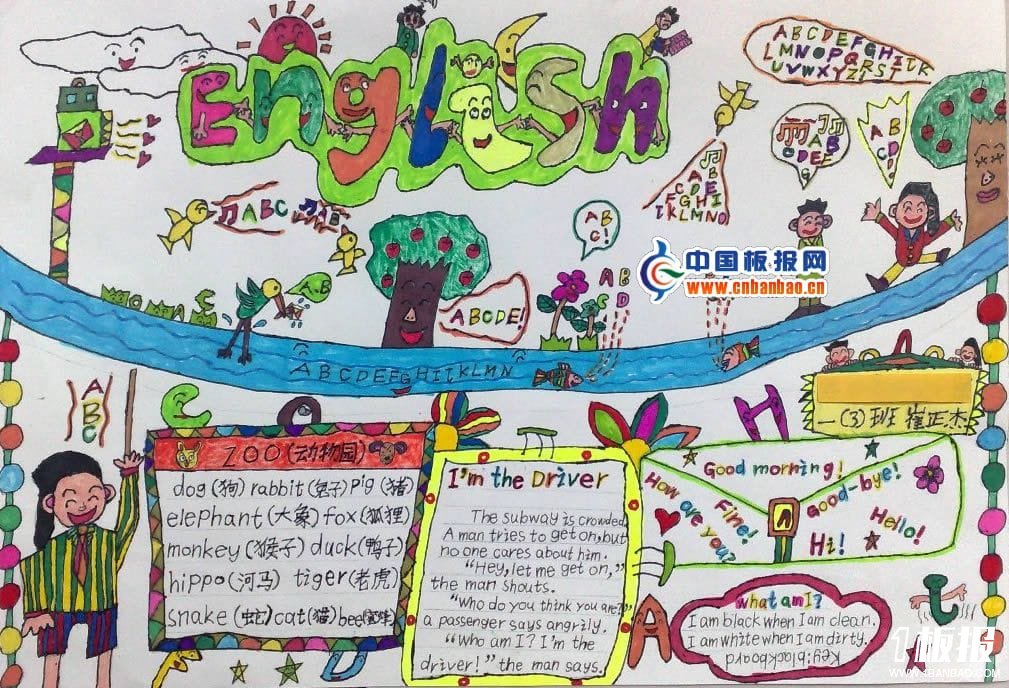 English
ABCDEF
ABC
AB
CDEF
G
AB
CD!
AB
C!
ABCDE!
AB
ABD
中国板报网
www.cnbanbao.cn
ABCDEFGHIJKLMN
ABC
一(3)班 崔正杰
ZOO(动物园)
dog(狗) rabbit(兔子) pig(猪)
elephant(大象) fox(狐狸)
monkey(猴子) duck(鸭子)
hippo(河马) tiger(老虎)
snake(蛇) cat(猫) bee(蜜蜂)
I'm the Driver
The subway is crowded.
A man tries to get on, but
no one cares about him.
"Hey, let me get on,"
the man shouts.
"Who do you think you are?"
a passenger says angrily.
"Who am I? I'm the
driver!" the man says.
Good morning!
How are you?
Fine!
Good-bye!
Hello!
Hi!
H
A
what am I?
I am black when I am clean.
I am white when I am dirty.
Key: blackboard
1板报
WWW.1BANBAO.COM